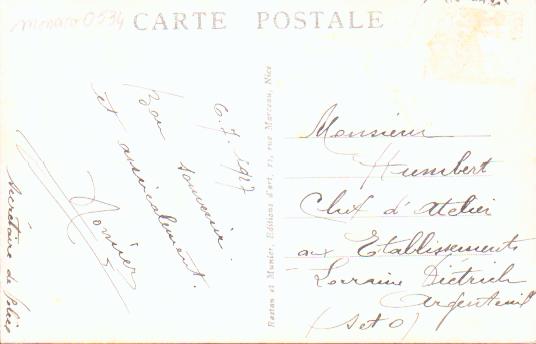 Monaco 0534
CARTE POSTALE
6.7.1927
Bon souvenir
et amicalement.
Secrétaire de Police
Rostan et Munier, Editions d'art, 21, rue Marceau, Nice
Monsieur
Humbert
Chef d'Atelier
aux Etablissements
Lorraine Diétrich
Argenteuil
(S et O)